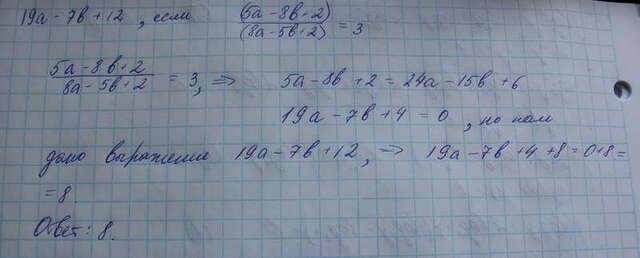 19a - 7b + 12, если (5a - 8b + 2) / (8a - 5b + 2) = 3
(5a - 8b + 2) / (8a - 5b + 2) = 3, ⇒ 5a - 8b + 2 = 24a - 15b + 6
19a - 7b + 4 = 0, но нам
дано выражение 19a - 7b + 12, ⇒ 19a - 7b + 4 + 8 = 0 + 8 =
= 8.
Ответ: 8.